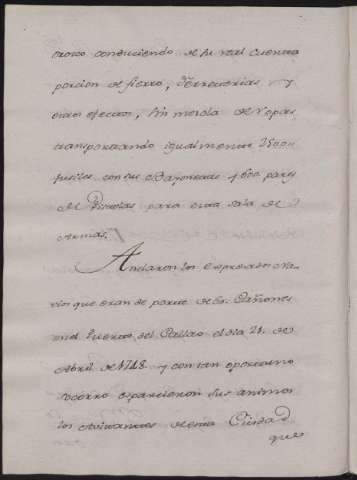 conduciendo de su real cuenta
porcion de fierro, Ferreterias y
otros efectos, sin mezcla de ropas,
transportando igualmente 2500
fusiles con sus Bayonetas y 600 pares
de Pistolas para esta sala de
Armas.
Anclaron los expresados Na
vios que eran de porte de 60 Cañones
en el Puerto del Callao el dia 24 de
Abril de 1748 y con tan oportuno
socorro esparcieron sus animos
los Avitantes de esta Ciudad
que